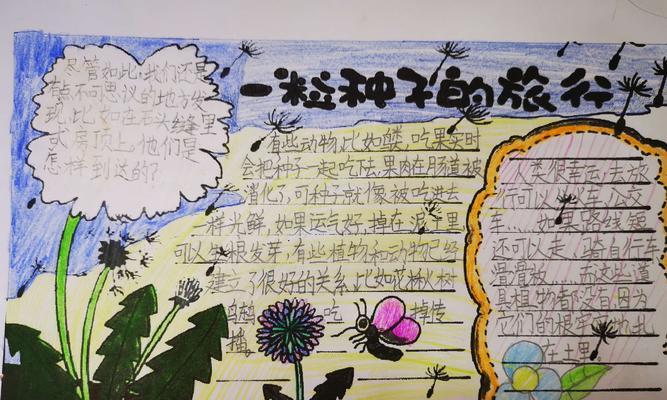 一粒种子的旅行
尽管如此,我们还是
有点不可思议的地方发
现,比如在石头缝里
或房顶上,他们是
怎样到达的?
有些动物,比如蝼,吃果实时
会把种子一起吃下去,果肉在肠道被
消化了,可种子就像被吃进去
一样光鲜,如果运气好,掉在泥土里
可以生根发芽,有些植物和动物已经
建立了很好的关系,比如花楸树
吃 掉传
播。
人类很幸运,去旅
行可以 火车,公交
车……如果路线短
还可以走,骑自行车
滑 ……而这些道
具植物都没有因为
它们的根牢牢地扎
在土里